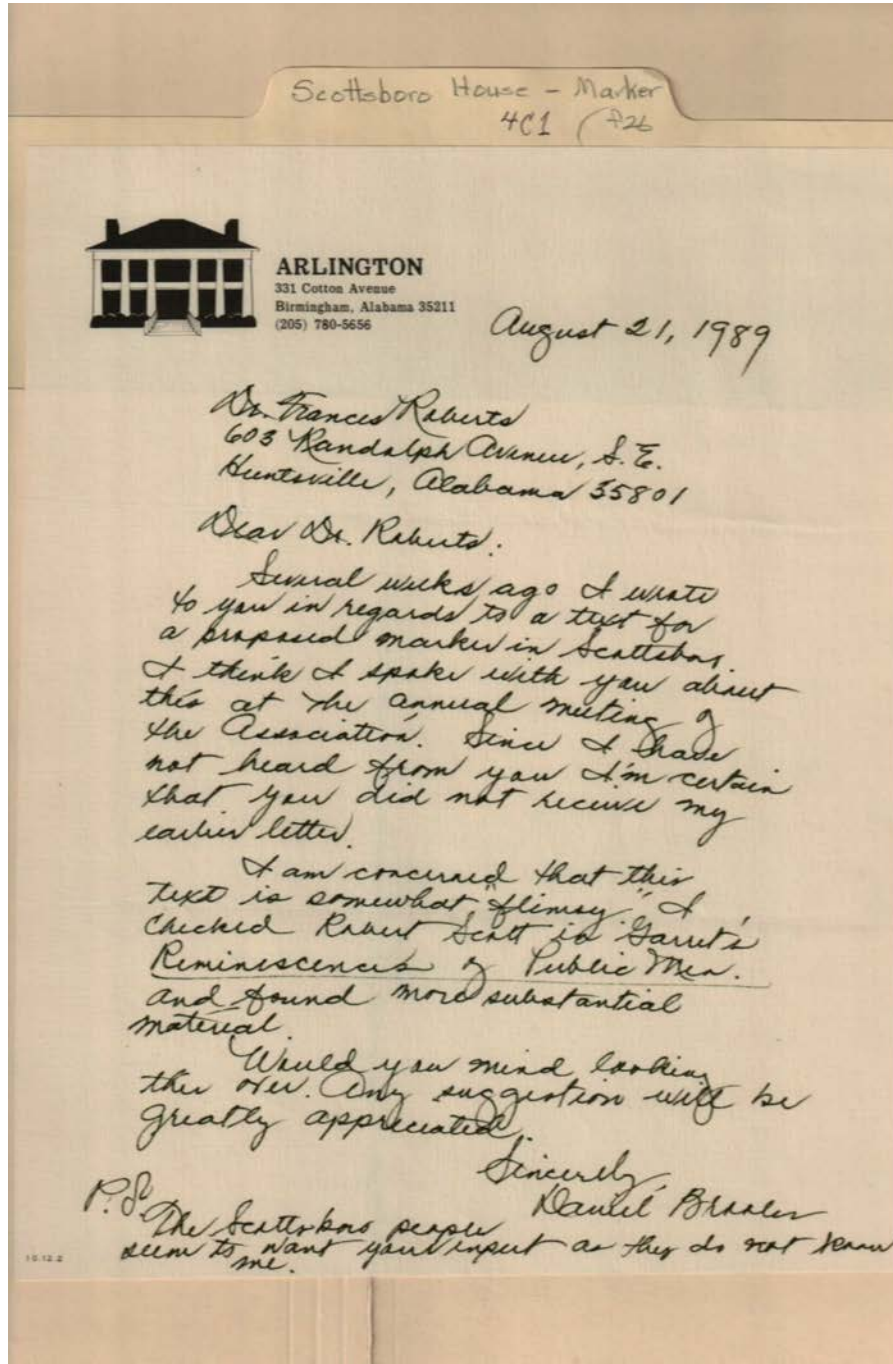 Scottsboro House - Marker
4C1 (f26
ARLINGTON
331 Cotton Avenue
Birmingham, Alabama 35211
(205) 780-5656
August 21, 1989
Dr. Frances Roberts
603 Randolph Avenue, S.E.
Huntsville, Alabama 35801
Dear Dr. Roberts:
Several weeks ago I wrote
to you in regards to a text for
a proposed marker in Scottsboro.
I think I spoke with you about
this at the annual meeting of
the Association. Since I have
not heard from you I'm certain
that you did not receive my
earlier letter.
I am concerned that this
text is somewhat "flimsy." I
checked Robert Scott in Garret's
Reminiscences of Public Men.
and found more substantial
material.
Would you mind looking
this over. Any suggestion will be
greatly appreciated.
Sincerely,
Daniel
P.S.
The Scottsboro people
seem to want your input as they do not know
me.
10.12.2